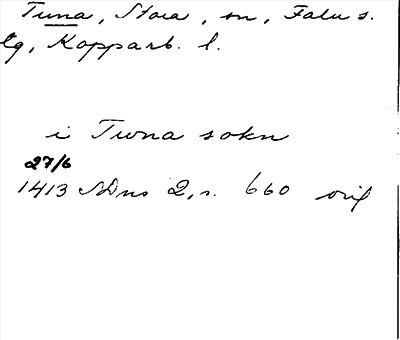 Tuna, Stora, sn, Falu s.
lg, Kopparb. l.
i Twna sokn
27/6
1413 SDns 2, s. 660 orig